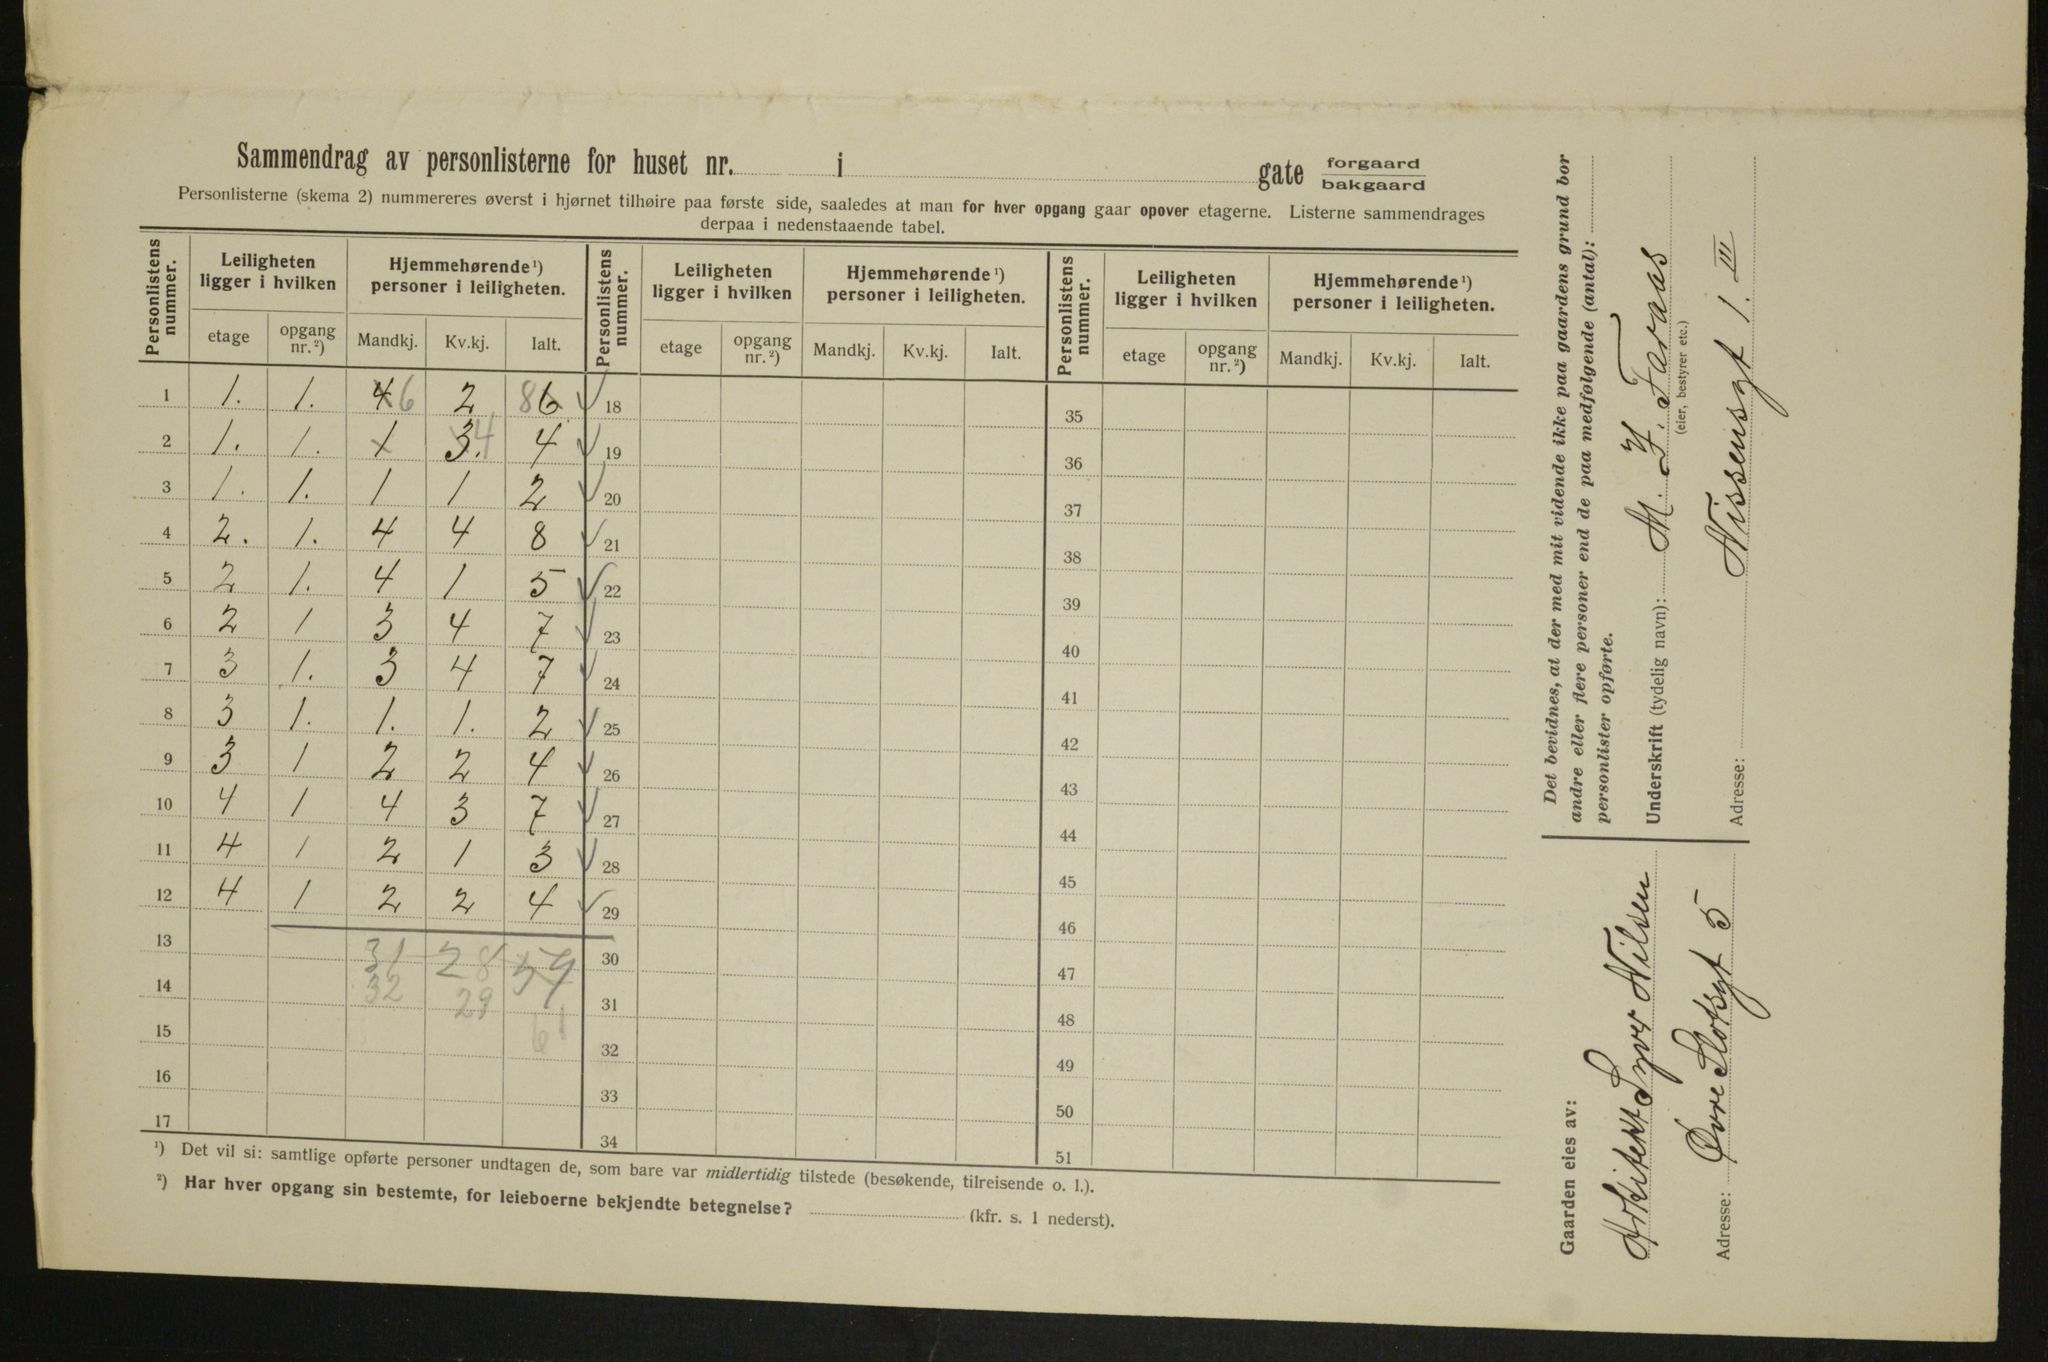 Sammendrag av personlisterne for huset nr. i gate forgaard
bakgaard
Personlisterne (skema 2) nummereres øverst i hjørnet tilhøire paa første side, saaledes at man for hver opgang gaar opover etagerne. Listerne sammendrages
derpaa i nedenstaaende tabel.
Personlistens nummer. Leiligheten ligger i hvilken Hjemmehørende ¹) personer i leiligheten. Personlistens nummer. Leiligheten ligger i hvilken Hjemmehørende ¹) personer i leiligheten. Personlistens nummer. Leiligheten ligger i hvilken Hjemmehørende ¹) personer i leiligheten.
etage opgang nr. ²) Mandkj. Kv.kj. Ialt. etage opgang nr. ²) Mandkj. Kv.kj. Ialt. etage opgang nr. ²) Mandkj. Kv.kj. Ialt.
1 1. 1. 4 6 2 8 6 ✓ 18 35
2 1. 1. 1 3. 4 4 ✓ 19 36
3 1. 1. 1 1 2 ✓ 20 37
4 2. 1. 4 4 8 ✓ 21 38
5 2 1. 4 1 5 ✓ 22 39
6 2 1 3 4 7 ✓ 23 40
7 3 1. 3 4 7 ✓ 24 41
8 3 1. 1. 1. 2 ✓ 25 42
9 3 1 2 2 4 ✓ 26 43
10 4 1 4 3 7 ✓ 27 44
11 4 1 2 1 3 ✓ 28 45
12 4 1 2 2 4 ✓ 29 46
13 31 28 59 30 47
14 32 29 31 48
15 61 32 49
16 33 50
17 34 51
¹) Det vil si: samtlige opførte personer undtagen de, som bare var midlertidig tilstede (besøkende, tilreisende o. l.).
²) Har hver opgang sin bestemte, for leieboerne bekjendte betegnelse? (kfr. s. 1 nederst).
Det bevidnes, at der med mit vidende ikke paa gaardens grund bor
andre eller flere personer end de paa medfølgende (antal):
personlister opførte.
Underskrift (tydelig navn): M. F. Faraas
(eier, bestyrer etc.)
Adresse: Nissensgt 1. III
Gaarden eies av:
Arkitekt Syver Nilsen
Adresse: Øvre Slotsgt 5